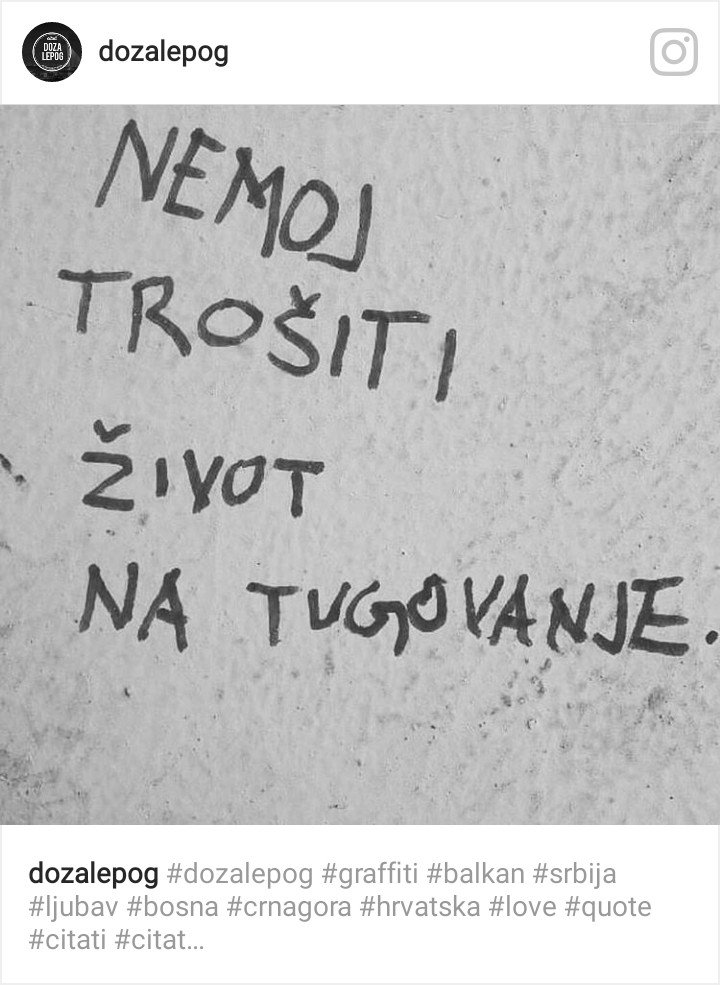 DOZA
LEPOG
dozalepog
NEMOJ
TROŠITI
ŽIVOT
NA TUGOVANJE.
dozalepog #dozalepog #graffiti #balkan #srbija
#ljubav #bosna #crnagora #hrvatska #love #quote
#citati #citat...